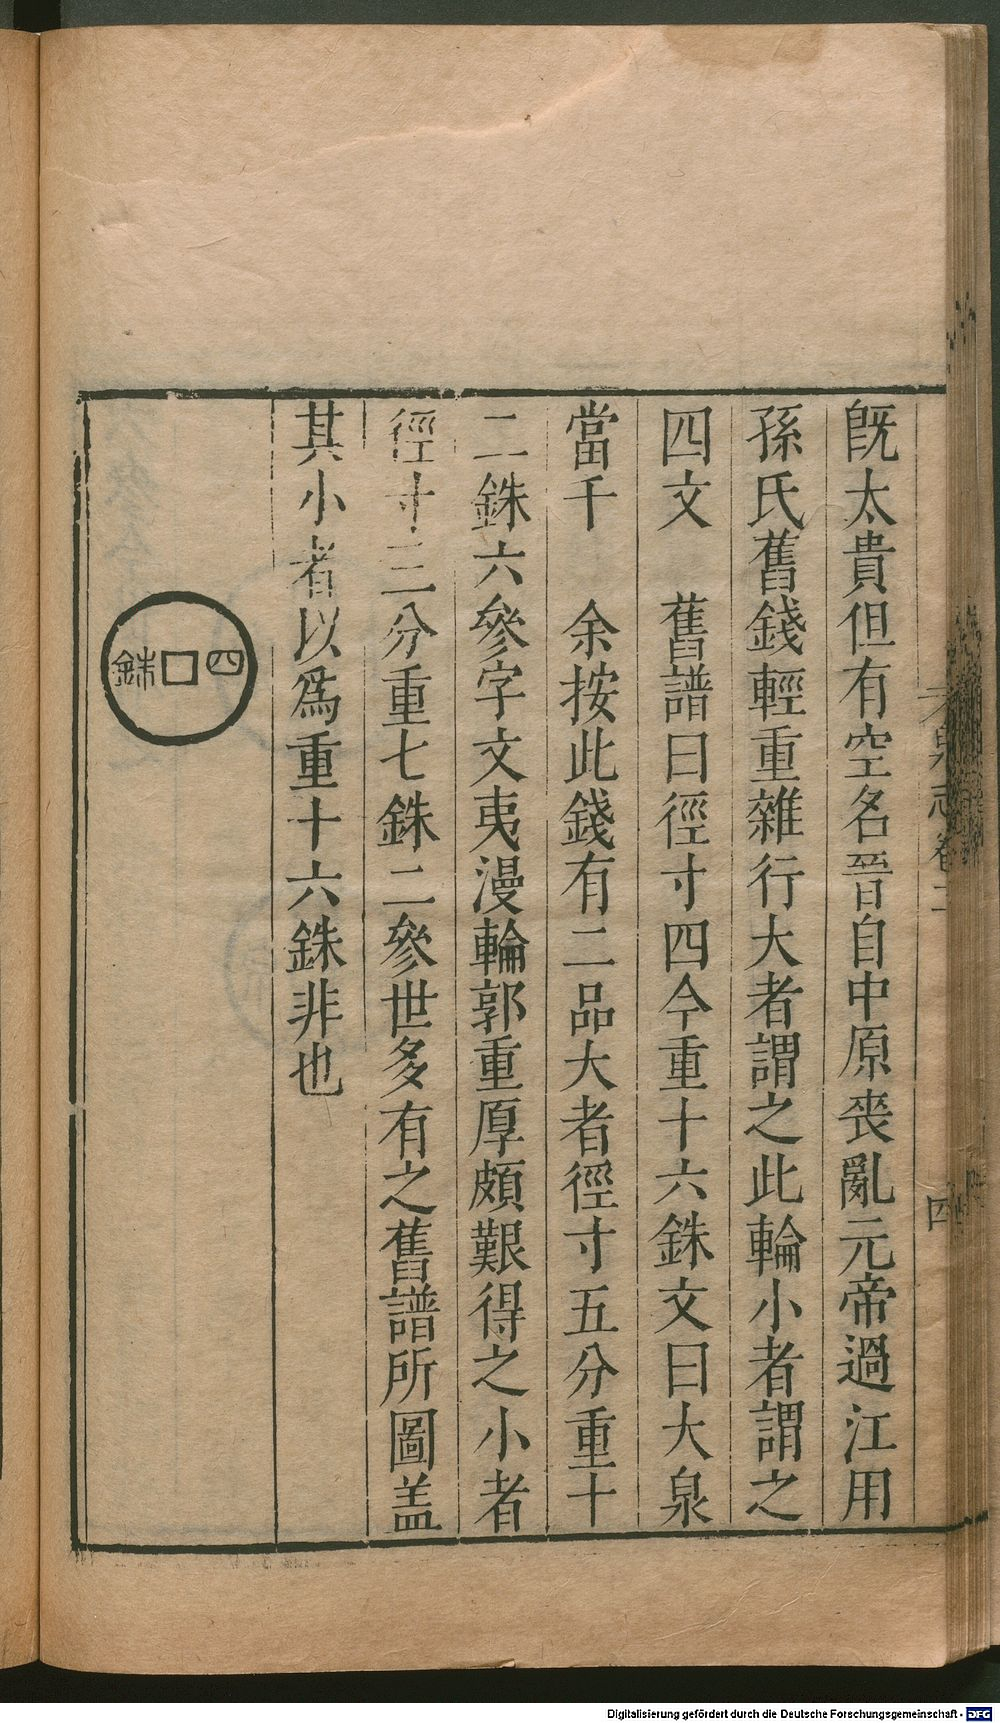 旣太貴但有空名晉自中原喪亂元帝過江用
孫氏舊錢輕重雜行大者謂之此輪小者謂之
四文　舊譜曰徑寸四今重十六銖文曰大泉
當千　余按此錢有二品大者徑寸五分重十
二銖六參字文夷漫輪郭重厚頗艱得之小者
徑寸三分重七銖二參世多有之舊譜所圖盖
其小者以爲重十六銖非也
四銖
泉志卷二
四
Digitalisierung gefördert durch die Deutsche Forschungsgemeinschaft - DFG